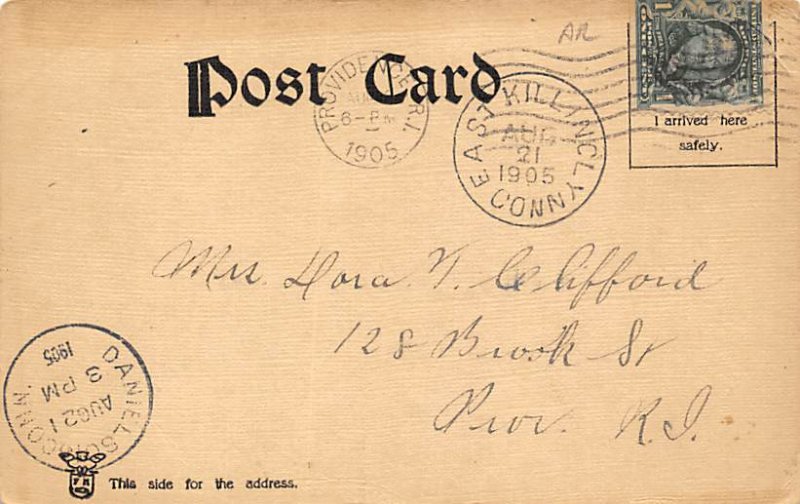 AR
Post Card
PROVIDENCE, R.I.
6-PM
1905
EAST KILLINGLY
AUG
21
1905
CONN
1
I arrived here
safely.
Mrs. Dora T. Clifford
128 Brook St
Prov. R.I.
DANIELSON, CONN.
AUG 21
3 PM
1905
This side for the address.